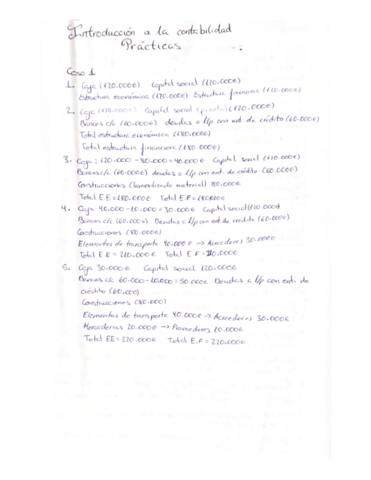 Introducción a la contabilidad
Prácticas
Caso 1
1. Caja (120.000€) Capital social (120.000€)
Estructura económica (120.000€) Estructura financiera (120.000€)
2. Caja (120.000€) Capital social (120.000€)
Bancos c/c (60.000€) deudas a l/p con ent. de crédito (60.000€)
Total estructura económica (180.000€)
Total estructura financiera (180.000€)
3. Caja: 120.000 - 80.000 = 40.000€ Capital social (120.000€)
Bancos c/c (60.000€) deudas a l/p con ent. de crédito (60.000€)
Construcciones (inmovilizado material) 80.000€
Total E.E = 180.000€ Total E.F = 180.000€
4. Caja 40.000 - 10.000 = 30.000€ Capital social (120.000€
Bancos c/c (60.000€) Deudas a l/p con ent de crédito (60.000€)
Construcciones (80.000€)
Elementos de transporte 40.000€ → Acreedores 30.000€
Total E.E = 210.000€ Total E.F = 210.000€
5. Caja 30.000€ Capital social 120.000€
Bancos c/c 60.000 - 10.000 = 50.000€ Deudas a l/p con ent. de
crédito (60.000)
Construcciones (80.000)
Elementos de transporte 40.000€ → Acreedores 30.000€
Mercaderías 20.000€ → Proveedores 10.000€
Total EE = 220.000€ Total E.F = 220.000€